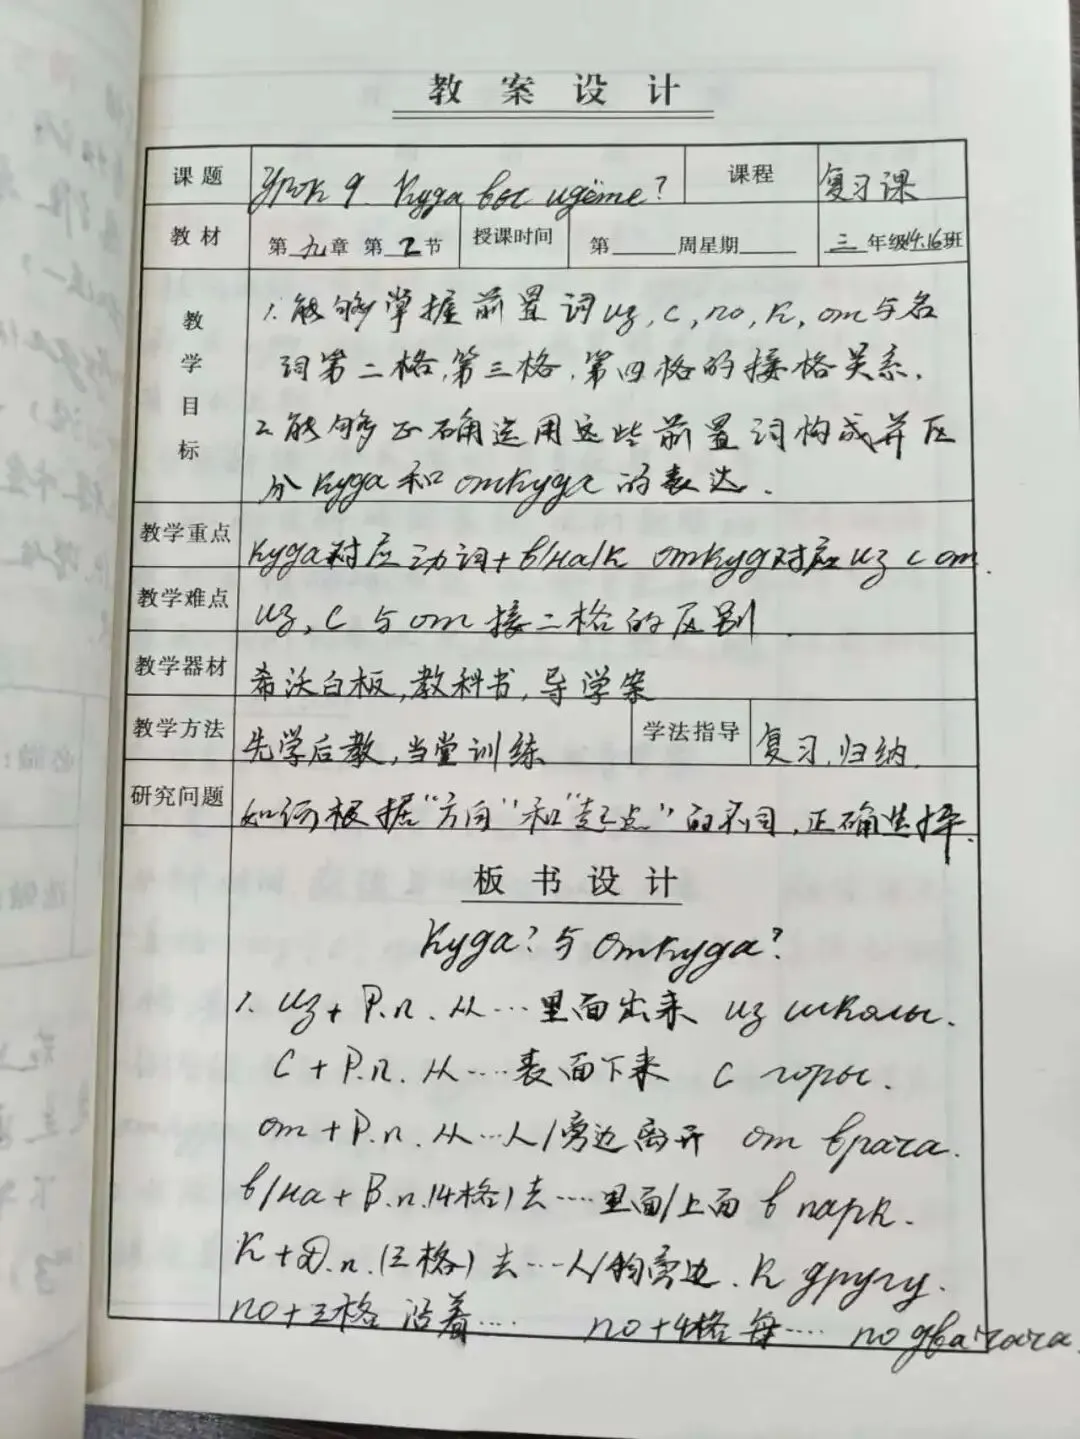 教案设计
课题 Урок 9. Куда вы идёте? 课程 复习课
教材 第九章 第2节 授课时间 第 周星期 三年级14.16班
教学目标
1. 能够掌握前置词из, с, по, к, от与名
词第二格,第三格,第四格的接格关系.
2. 能够正确运用这些前置词构成并区
分куда和откуда的表达.
教学重点 куда对应动词+в/на/к откуд对应из с от.
教学难点 из, с 与от接二格的区别.
教学器材 希沃白板,教科书,导学案
教学方法 先学后教,当堂训练 学法指导 复习,归纳.
研究问题 如何根据“方向”和“起点”的不同,正确选择.
板书设计
Куда?与откуда?
1. из+Р.п. 从…里面出来 из школы.
с+Р.п. 从……表面下来 с горы.
от+Р.п. 从…人/旁边离开 от врача.
в/на+В.п.(4格)去……里面/上面 в парк.
к+Д.п.(三格)去…人/物旁边. к другу.
по+三格 沿着…… по+4格 每…… по два часа.